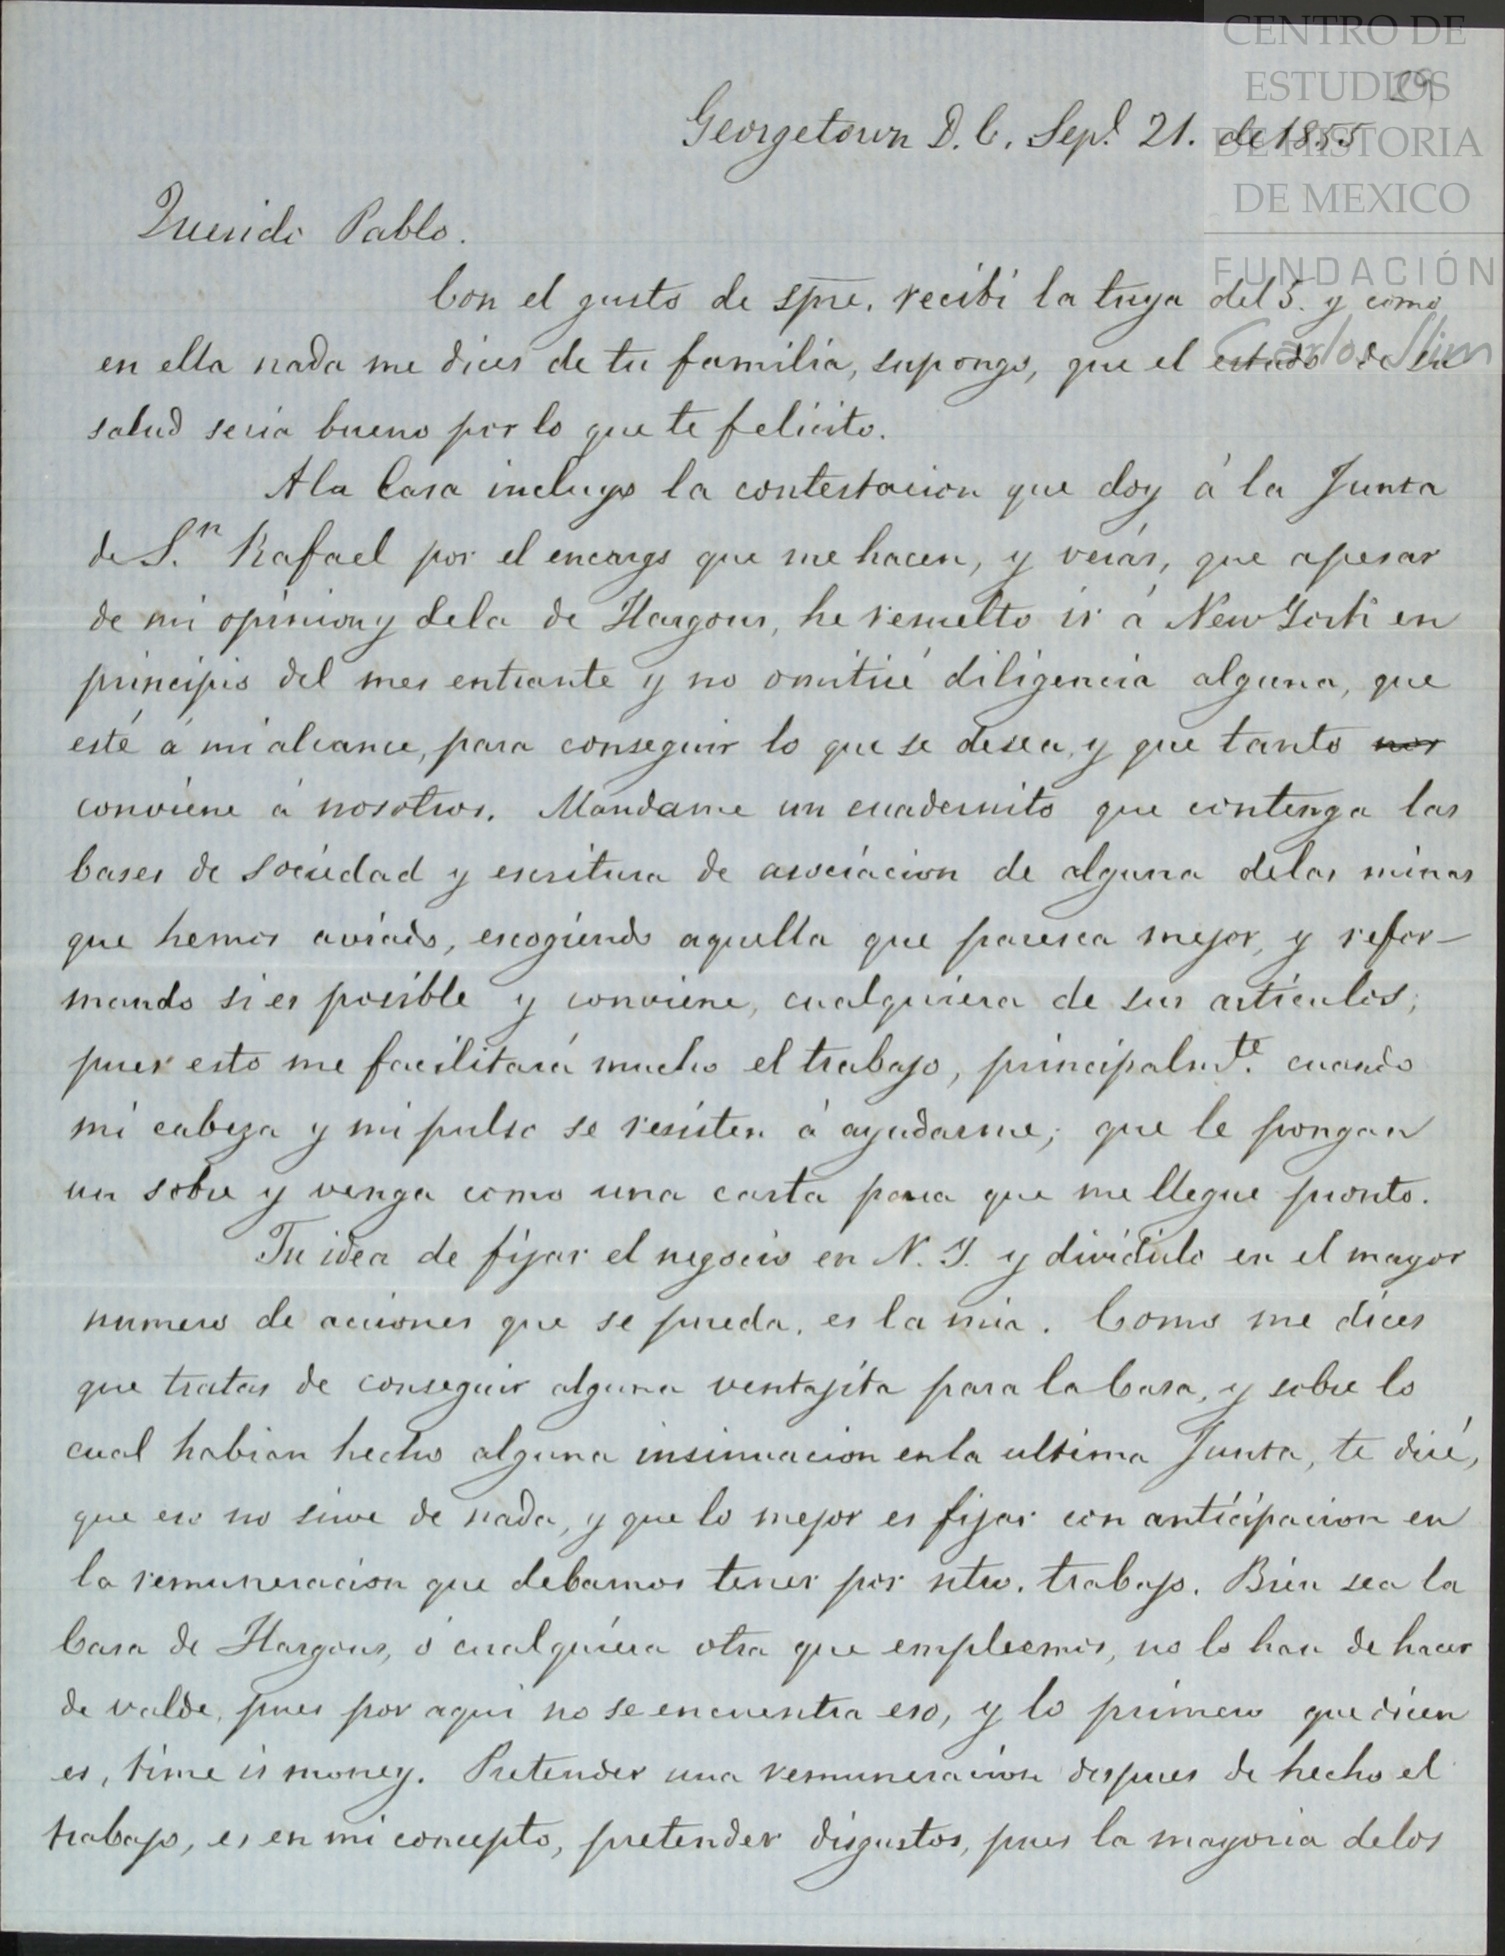 CENTRO DE
ESTUDIOS
DE HISTORIA
DE MEXICO
FUNDACIÓN
Carlos Slim
29
Georgetown D. C. Sepe. 21. de 1855
Querido Pablo.
Con el gusto de spre. recibi la tuya del 5. y como
en ella nada me dices de tu familia, supongo, que el estado de su
salud seria bueno por lo que te felicito.
A la Casa incluyo la contestacion que doy á la Junta
de S.n Rafael por el encargo que me hacen, y verás, que apesar
de mi opinion y dela de Hargous, he resuelto ir á New York en
principio del mes entrante y no omitiré diligencia alguna, que
esté á mi alcance, para conseguir lo que se desea, y que tanto nos
conviene á nosotros. Mandame un cuadernito que contenga las
bases de sociedad y escritura de asociacion de alguna delas minas
que hemos aviado, escogiendo aquella que paresca mejor, y refor-
mando si es posible y conviene, cualquiera de sus articulos,
pues esto me facilitará mucho el trabajo, principalmte. cuando
mi cabeza y mi pulso se resisten á ayudarme; que le pongan
un sobre y venga como una carta para que me llegue pronto.
Tu idea de fijar el negocio en N. Y. y dividirlo en el mayor
numero de acciones que se pueda, es la mia. Como me dices
que tratas de conseguir alguna ventajita para la Casa, y sobre lo
cual habian hecho alguna insinuacion enla ultima Junta, te diré,
que eso no sirve de nada, y que lo mejor es fijar con anticipacion en
la remuneracion que debamos tener por ntro. trabajo. Bien sea la
Casa de Hargous, ó cualquiera otra que empleemos, no lo han de hacer
de valde, pues por aqui no se encuentra eso, y lo primero que dicen
es, time is money. Pretender una remuneracion despues de hecho el
trabajo, es en mi concepto, pretender disgustos, pues la mayoria delos